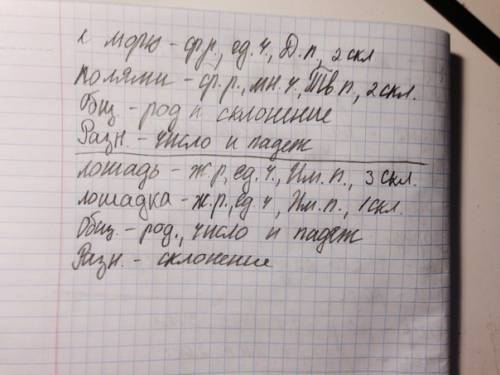 к морю - ср.р., ед.ч., Д.п., 2 скл
полями - ср.р., мн.ч, Тв.п., 2скл.
Общ - род и склонение
Разн. - число и падеж
лошадь - ж.р, ед.ч., Им.п., 3 скл.
лошадка - ж.р, ед.ч, Им.п., 1 скл.
Общ - род, число и падеж
Разн. - склонение